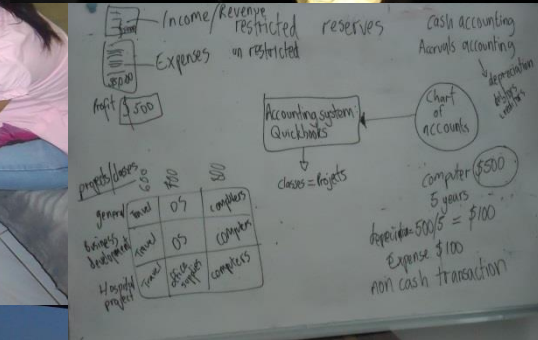 Income/Revenue
restricted reserves
un restricted
Expenses
Profit $500
Cash accounting
Accruals accounting
depreciation
debtors
creditors
Accounting system:
Quickbooks
Chart
of
accounts
classes = Projects
computer $500
5 years
500/5 = $100
Expense $100
non cash transaction
projects/classes
600 700 800
general Travel OS computers
Business development Travel OS computers
Hospital project Travel office supplies computers